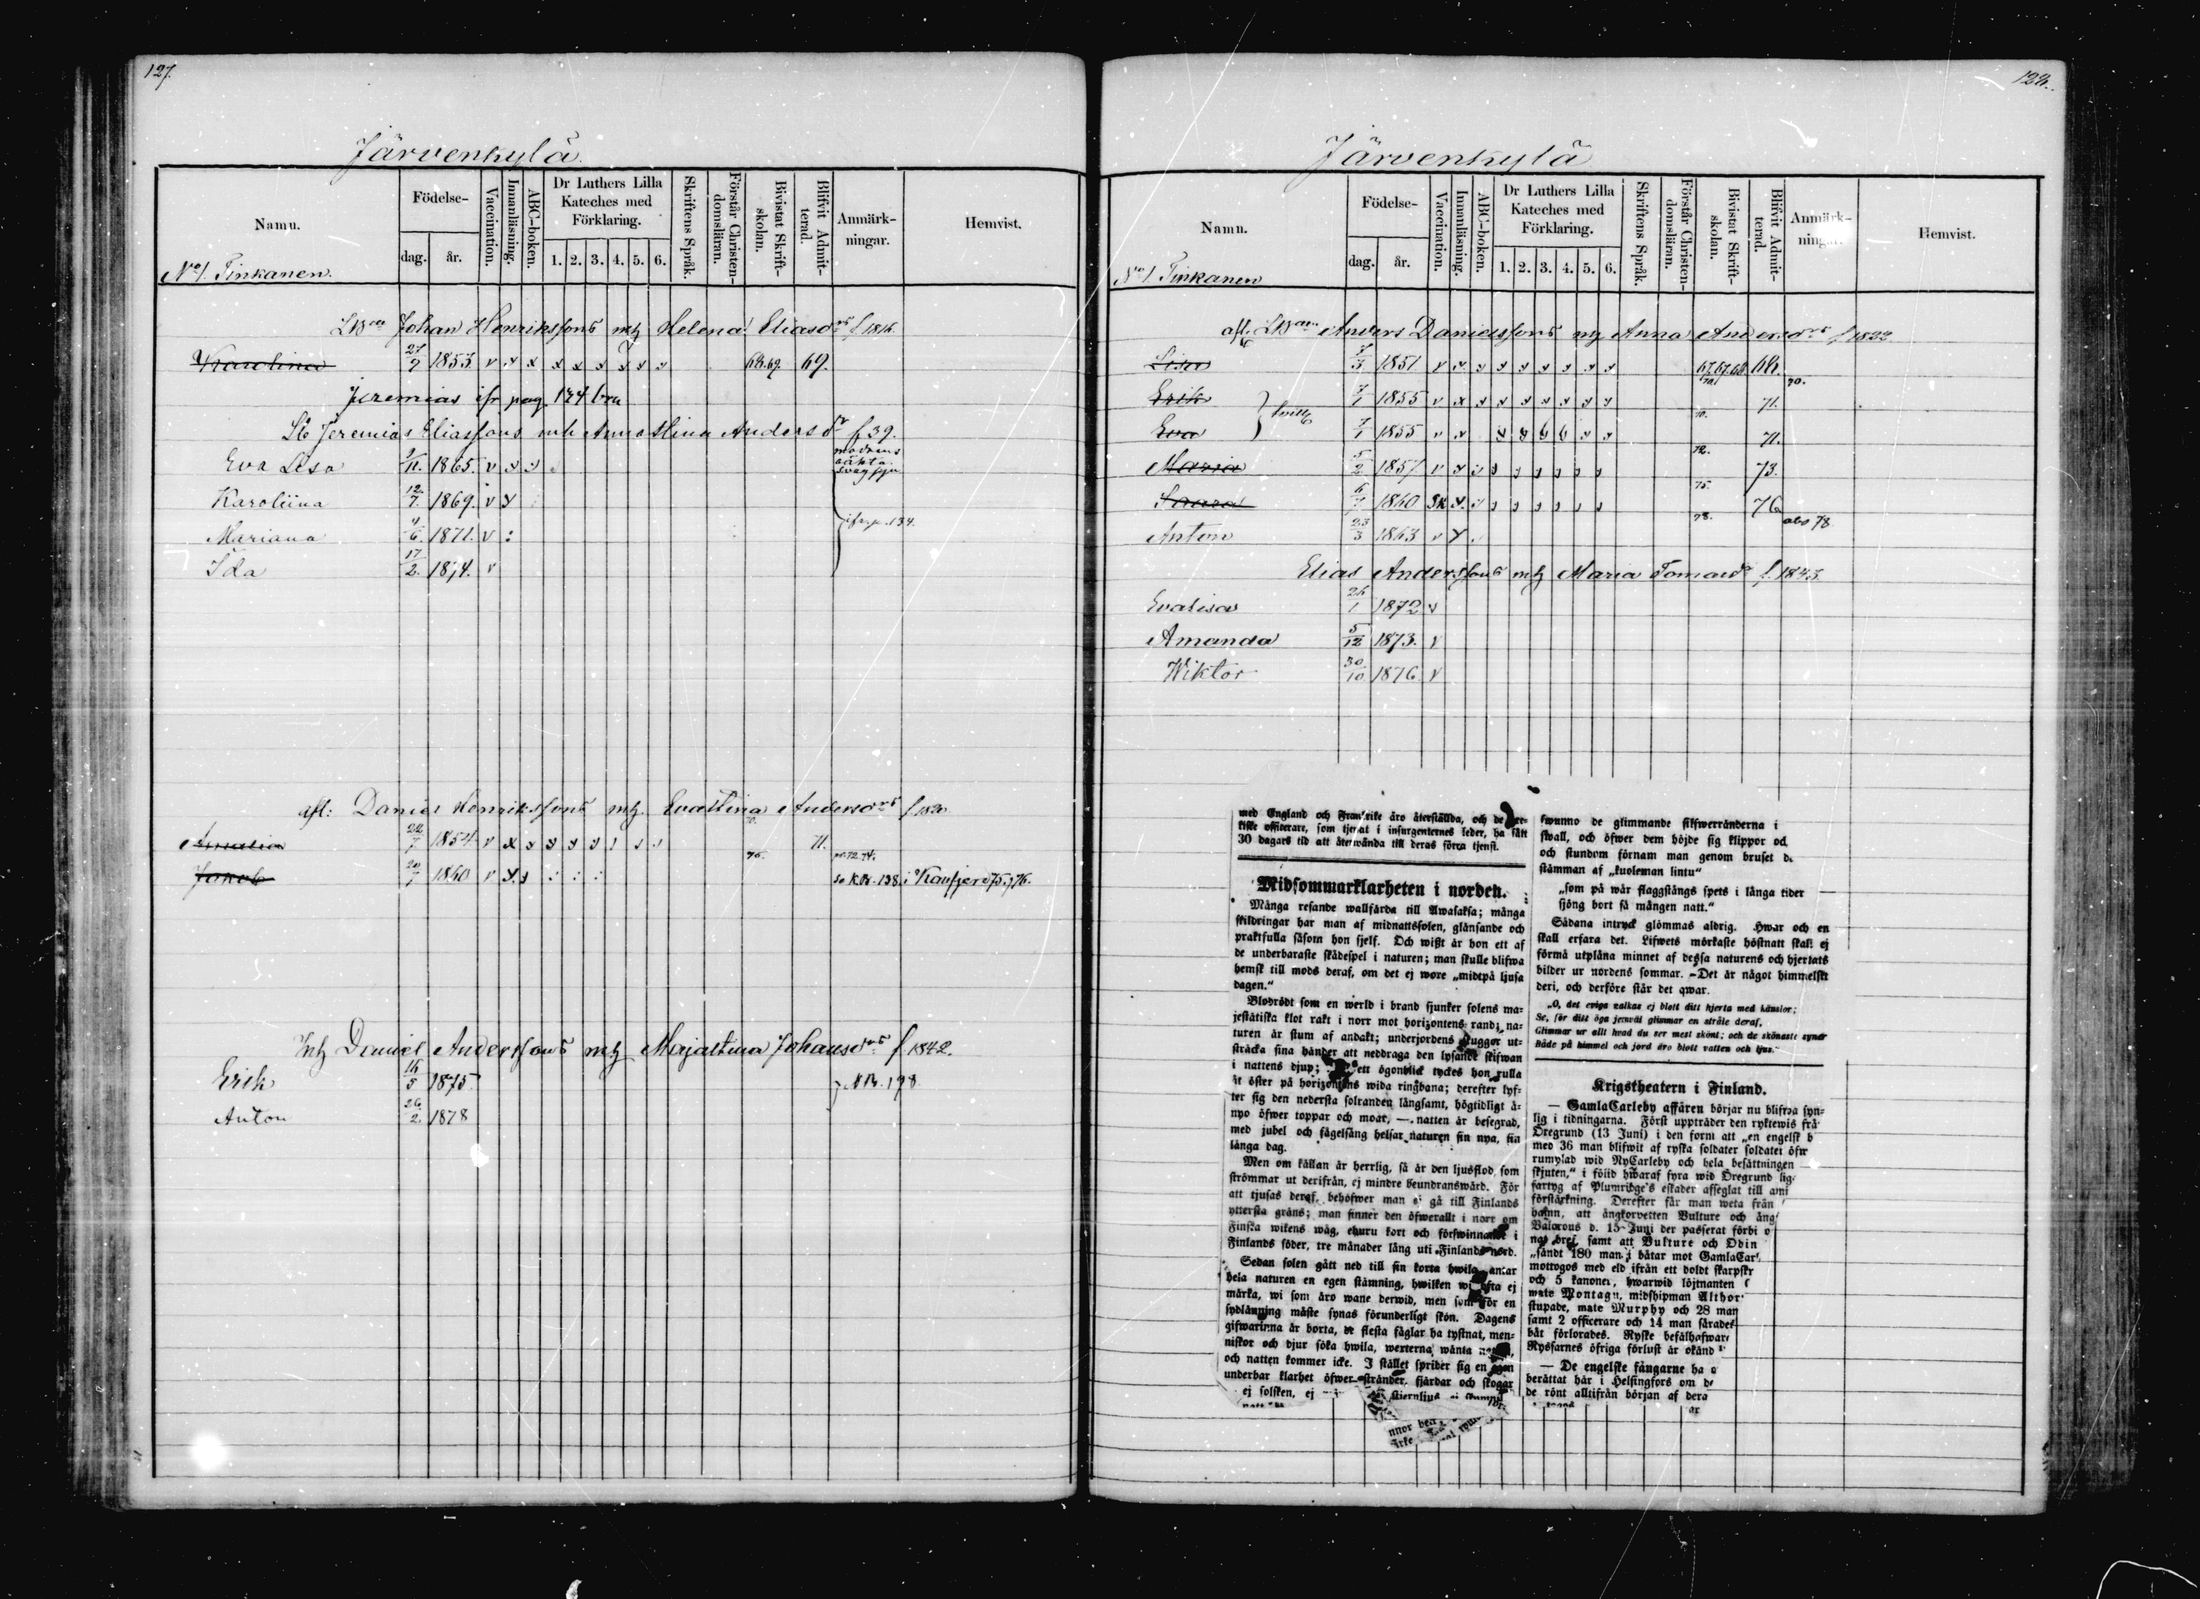 127.
Järvenkylä.
Namn.
Födelse-
dag.
år.
Vaccination.
Innanläsning.
ABC-boken.
Dr Luthers Lilla
Kateches med
Förklaring.
1. 2. 3. 4. 5. 6.
Skriftens Språk.
Förstår Christen-
domsläran.
Bivistat Skrift-
skolan.
Blifvit Admit-
terad.
Anmärk-
ningar.
Hemvist.
No 1. Tinkanen.
Johan Henrikssons Helena Eliasdrs f 1816.
Karolina 27/9 1853. v x x x x x x x x 68.69. 69.
Jeremias pag. 134
Jeremias Eliassons Anna Stina Andersdr f 39.
Eva Lisa 1865. v
Karoliina 12/7. 1869. v
Mariana 1871. v
134.
Ida 17/2. 1874. v
afl: Daniel Henrikssons Evastina Andersdrs f 1820
Amalia 22/7 1854 v x x 71.
Jakob 1860 v 138. i 75, 76.
Daniel Anderssons Majastina Johansdrs f 1842.
Erik 16/5 1875
Anton 26/2. 1878
Järvenkylä
Namn.
Födelse-
dag.
år.
Vaccination.
Innanläsning.
ABC-boken.
Dr Luthers Lilla
Kateches med
Förklaring.
1. 2. 3. 4. 5. 6.
Skriftens Språk.
Förstår Christen-
domsläran.
Bivistat Skrift-
skolan.
Blifvit Admit-
terad.
Anmärk-
Hemvist.
No 1. Tinkanen
afl. Anders Danielssons Anna Andersdrs f 1822
Lisa 1851 v 67.67.68 68.
Erik 7/1 1855 v 71.
Eva 7/1 1855 v 71.
Maria 5/2 1857 v 72. 73.
Saara 1860 75. 76
Anton 23/3 1863 v 78. abs 78
Elias Anderssons Maria Tomasdr f. 1843.
Evalisa 1872 v
Amanda 5/12 1873. v
Wiktor 30/10 1876 v
med England och Frankrike äro återställda, och de
kiske officerare, som tjenat i insurgenternes leder, ha fått
30 dagars tid att återwända till deras förra tjenst.
Midsommarklarheten i norden.
Många resande wallfärda till Awasaksa; många
skildringar har man af midnattssolen, glänsande och
praktfulla såsom hon sjelf. Och wißt är hon ett af
de underbaraste skådespel i naturen; man skulle blifwa
hemsk till mods deraf, om det ej wore „midtpå ljusa
dagen.“
Blodrödt som en werld i brand sjunker solens ma-
jestätiska klot rakt i norr mot horizontens rand; na-
turen är stum af andakt; underjordens skuggor ut-
sträcka sina händer att neddraga den lysande skifwan
i nattens djup; ett ögonblick tyckes hon rulla
åt öster på horizontens wida ringbana; derefter lyf-
ter sig den nedersta solranden långsamt, högtidligt å-
nyo öfwer toppar och moar, — natten är besegrad,
med jubel och fågelsång helsar naturen sin nya, sin
långa dag.
Men om källan är herrlig, så är den ljusflod som
strömmar ut derifrån, ej mindre beundranswärd. För
att tjusas deraf, behöfwer man ej gå till Finlands
yttersta gräns; man finner den öfwerallt i norr om
Finska wikens wåg, ehuru kort och förswinnande i
Finlands söder, tre månader lång uti Finlands nord.
Sedan solen gått ned till sin korta hwila, antar
hela naturen en egen stämning, hwilken wi ofta ej
märka, wi som äro wane derwid, men som för en
sydlänning måste synas förunderligt skön. Dagens
gifwarinna är borta, de flesta fåglar ha tystnat, men-
niskor och djur söka hwila, wexterna wänta
och natten kommer icke. I stället sprider sig en egen
underbar klarhet öfwer stränder, fjärdar och skogar
ej solsken, ej
swunno de glimmande silfwerränderna i
swall, och öfwer dem höjde sig klippor oc
och stundom förnam man genom bruset de
stämman af „kuoleman lintu“
„som på wår flaggstångs spets i långa tider
sjöng bort så mången natt.“
Sådana intryck glömmas aldrig. Hwar och en
skall erfara det. Lifwets mörkaste höstnatt skall ej
förmå utplåna minnet af dessa naturens och hjertats
bilder ur nordens sommar. —Det är något himmelskt
deri, och derföre står det qwar.
„O, det eviga nalkas ej blott ditt hjerta med känslor;
Se, för ditt öga jemväl glimmar en stråle deraf,
Glimmar ur allt hvad du ser mest skönt; och de skönaste syner
Både på himmel och jord äro blott vatten och ljus.“
Krigstheatern i Finland.
— GamlaCarleby affären börjar nu blifwa syn-
lig i tidningarna. Först uppträder den ryktewis frå
Öregrund (13 Juni) i den form att „en engelsk b
med 36 man blifwit af ryska soldater soldater öfw
rumplad wid NyCarleby och hela besättningen
skjuten,“ i följd hwaraf fyra wid Öregrund lig
fartyg af Plumridge's eskader afseglat till ami
förstärkning. Derefter får man weta från
hamn, att ångkorvetten Vulture och ång
Valorous d. 15 Juni der passerat förbi o
samt att Vulture och Odin
„sändt 180 man i båtar mot GamlaCar
mottogos med eld ifrån ett doldt skarpskr
och 5 kanoner, hwarwid löjtnanten
mate Montagu, midshipman Althor
stupade, mate Murphy och 28 man
samt 2 officerare och 14 man sårades
båt förlorades. Ryske befälhafwar
Ryssarnes öfriga förlust är okänd
— De engelske fångarne ha
berättat här i Helsingfors om de
de rönt alltifrån början af dera